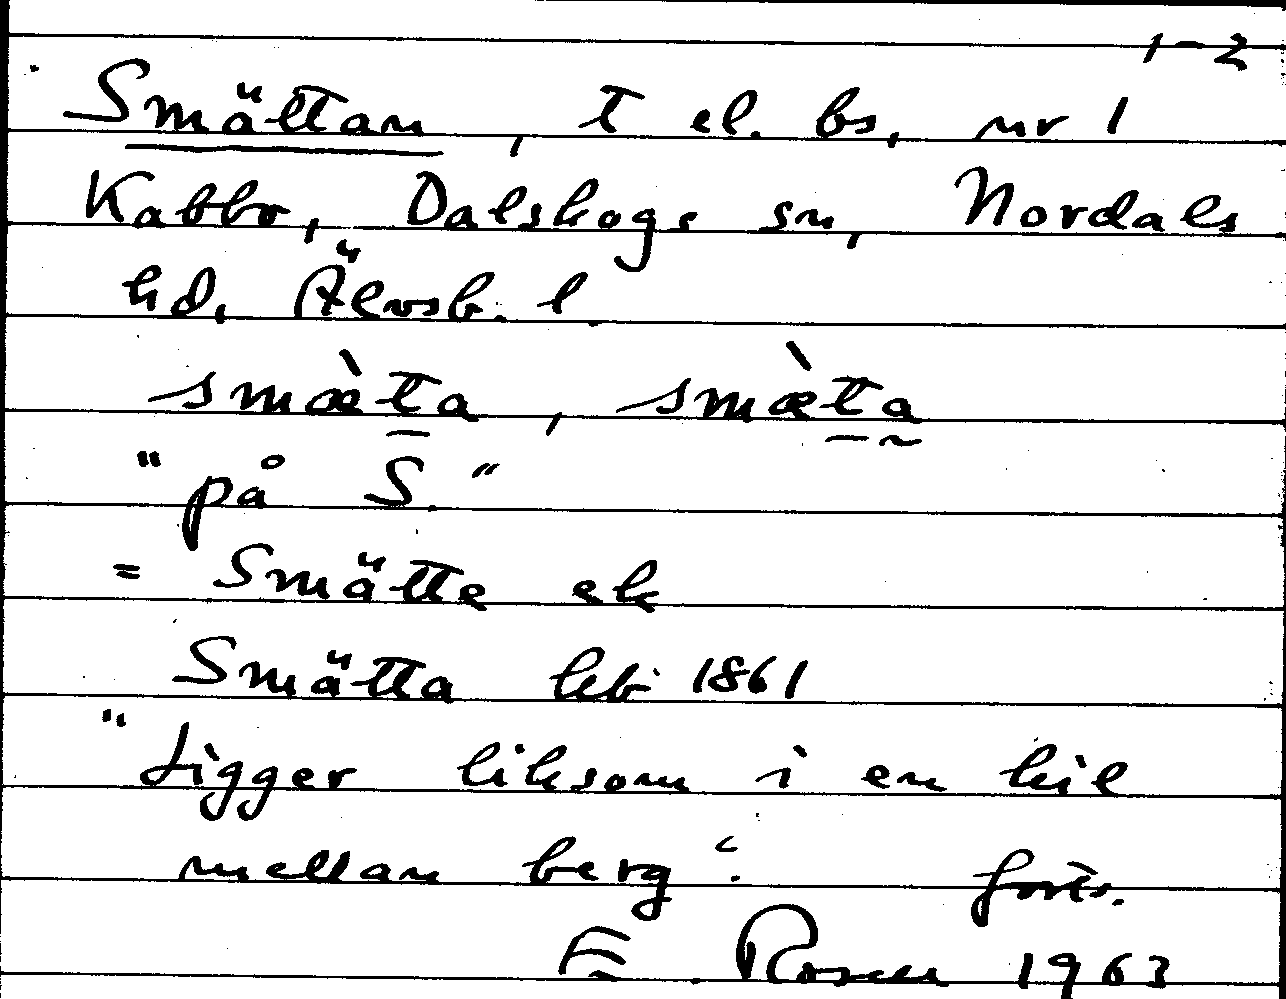 1-2
Smättan, t el. bs, nr 1
Kabbo, Dalskogs sn, Nordals
hd, Älvsb. l.
smæ̀ta, smæ̀ta
"på S."
= Smätte ek
Smätta hkt 1861
"Ligger liksom i en kil
mellan berg". forts.
E. Rosell 1963